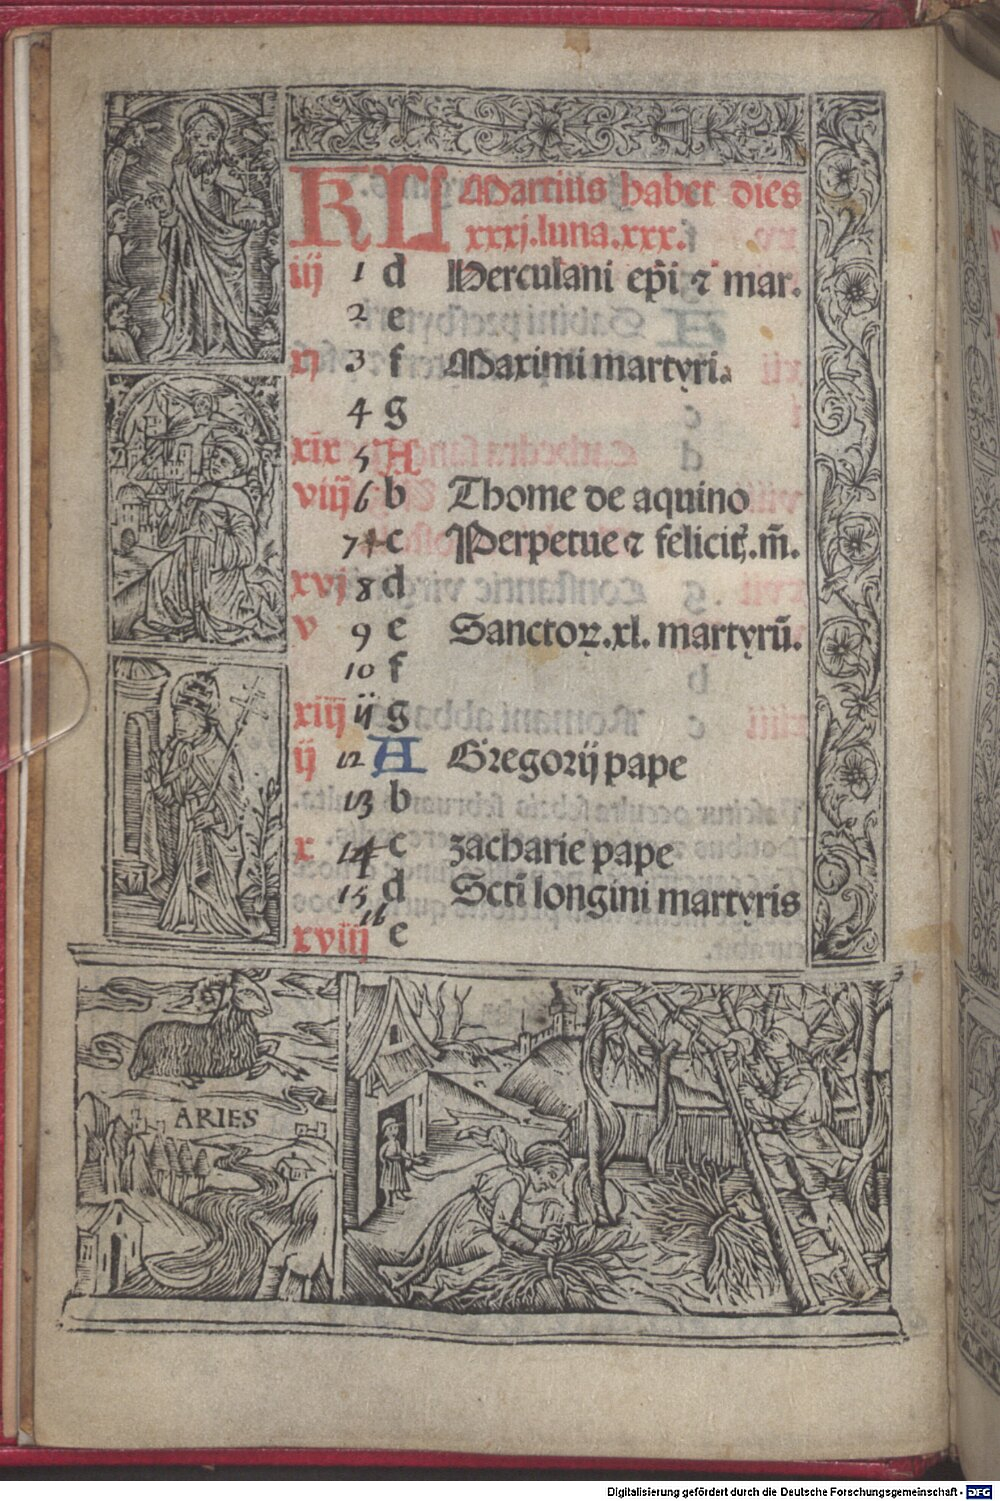 KL Martius habet dies
xxxj.luna.xxx.
iij 1 d Herculani ep̄i ⁊ mar.
2 e
xj 3 f Maximi martyri.
4 g
xix 5 A
viij 6 b Thome de aquino
7 c Perpetue ⁊ felicit̄.m̄.
xvj 8 d
v 9 e Sanctoꝝ.xl. martyrū.
10 f
xiij 11 g
ij 12 A Gregorij pape
13 b
x 14 c zacharie pape
15 d Scti̅ longini martyris
xviij 16 e
ARIES
Digitalisierung gefördert durch die Deutsche Forschungsgemeinschaft - DFG